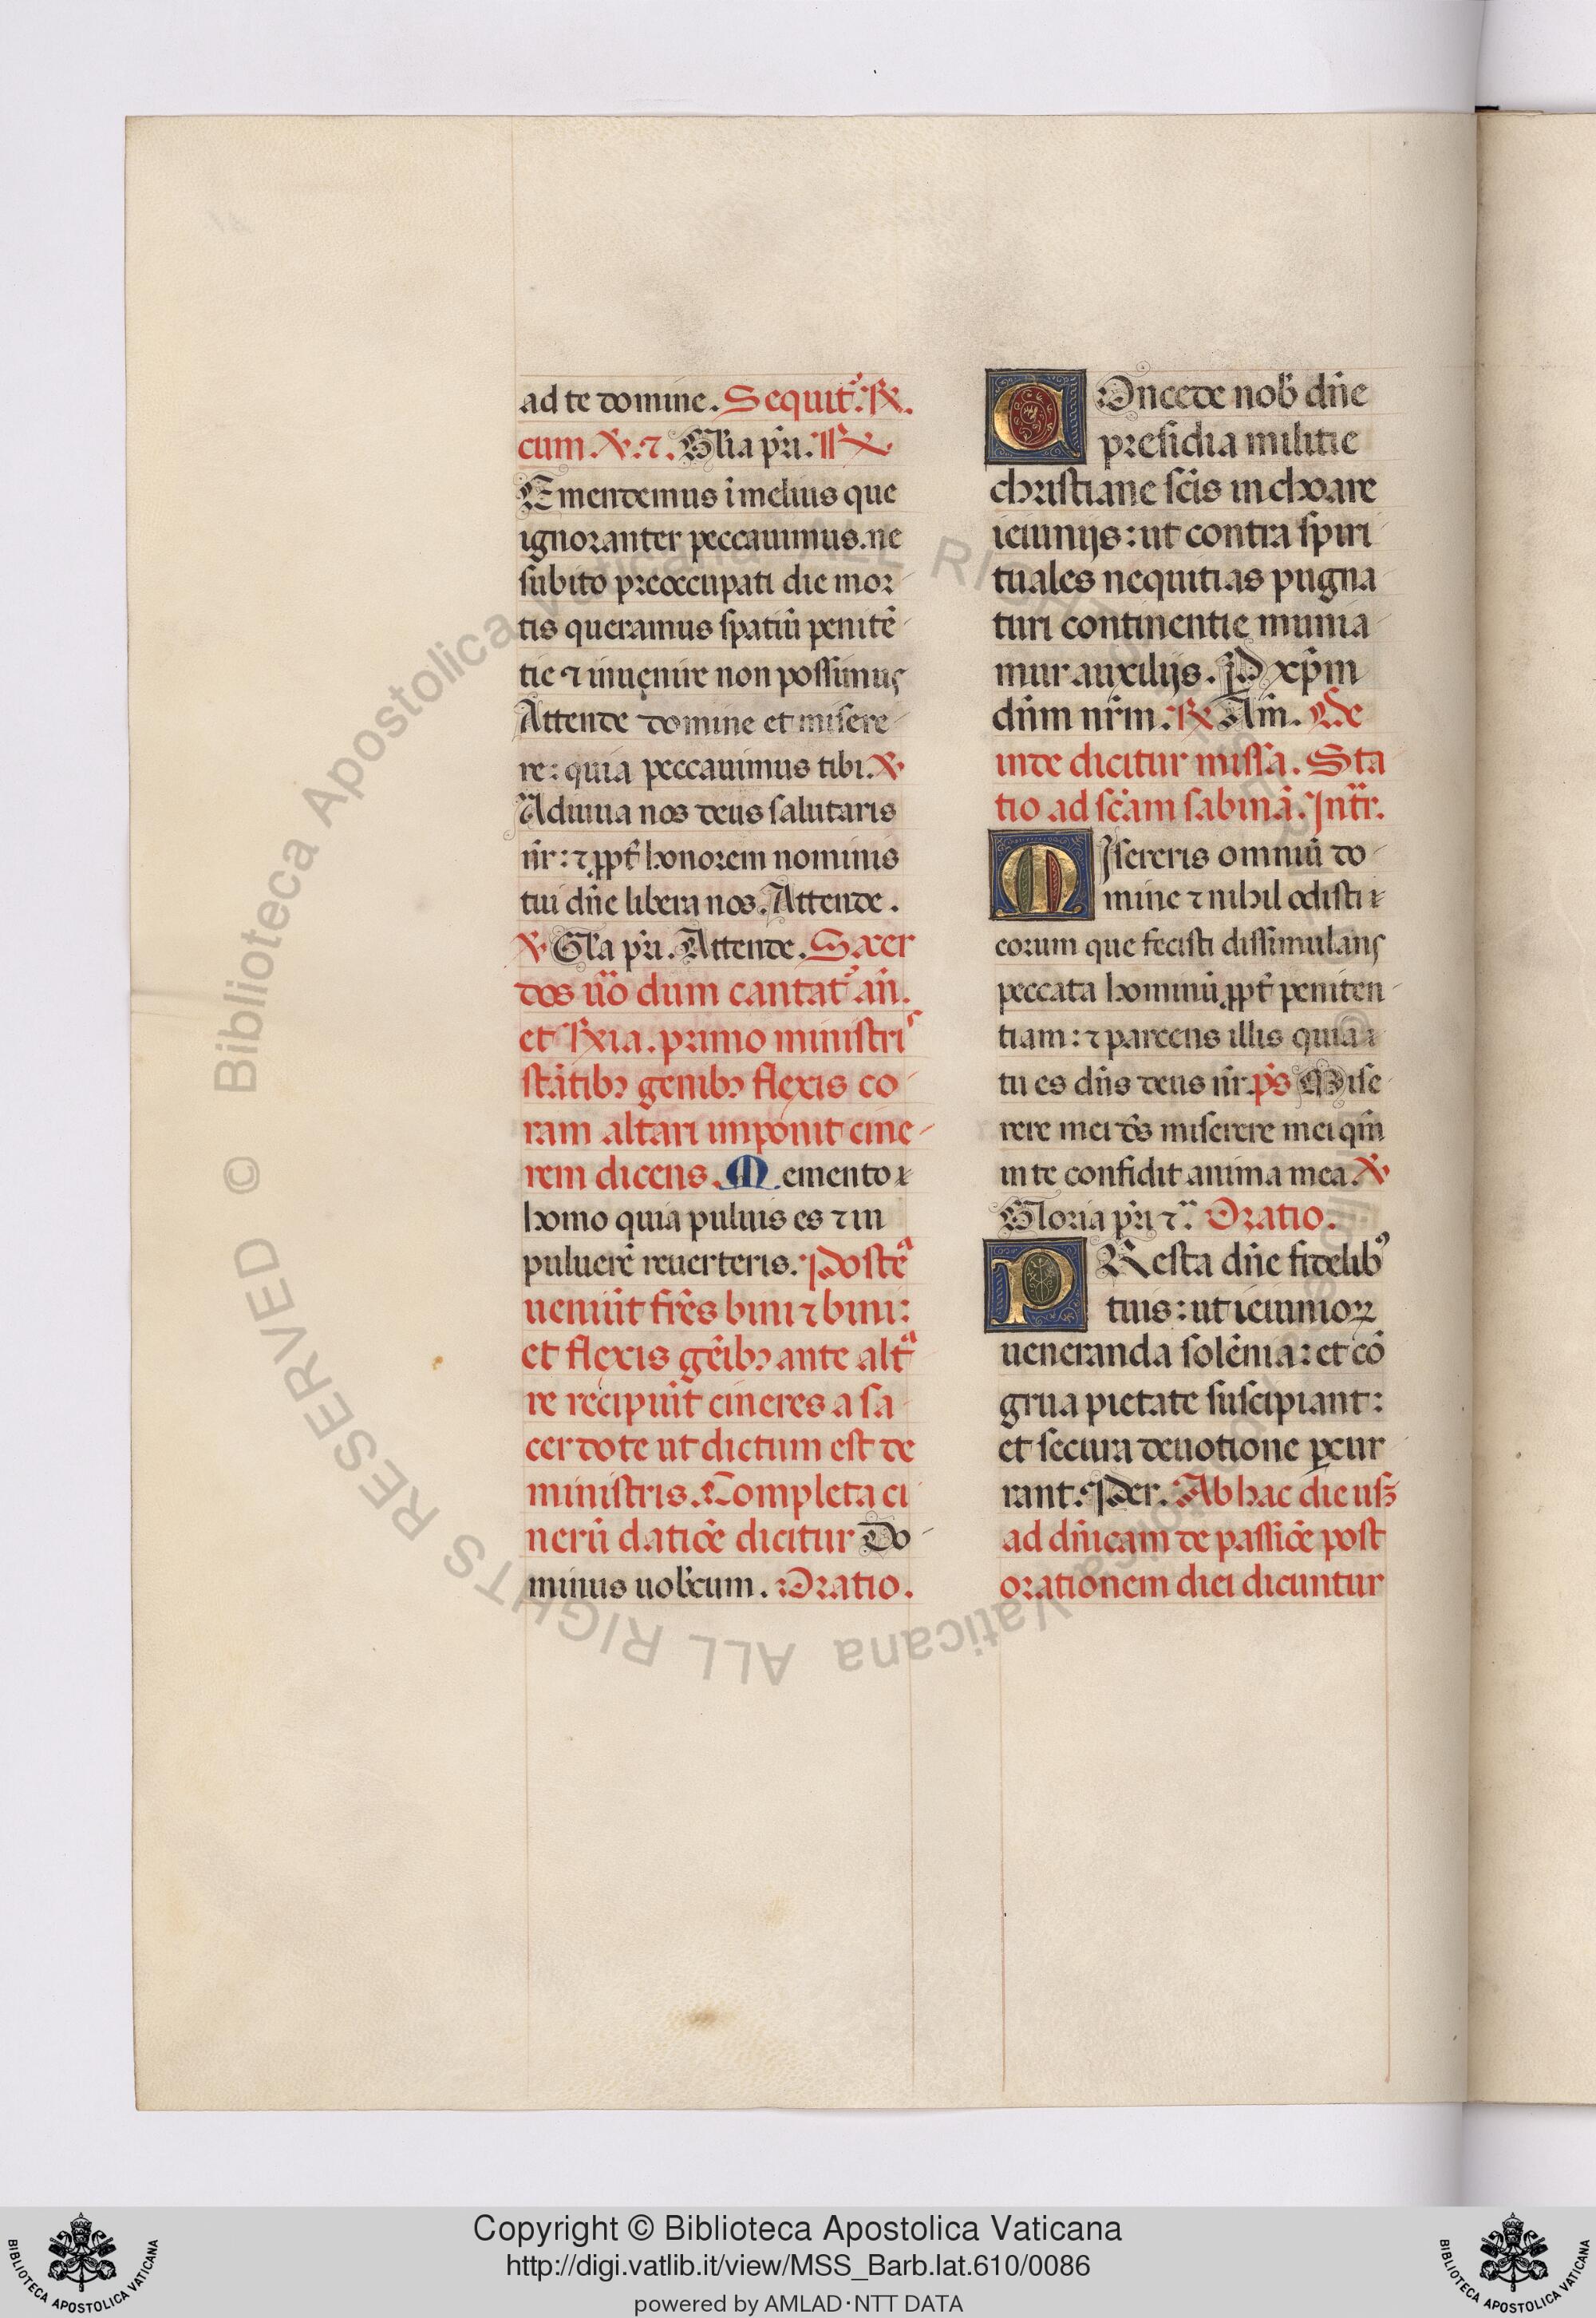 ad te domine. Sequit᷑. ℞.
cum ℣. ⁊. Glia pr̄i. ℞
Emendemus ī melius que
ignoranter peccauimus. ne
subito preoccupati die mor
tis queramus spatiū penitē
tie ⁊ inuenire non possimus
Attende domine et misere
re: quia peccauimus tibi. ℣
Adiuua nos deus salutaris
nr̄: ⁊ ꝓpt̄ honorem nominis
tui dn̄e libera nos. Attende.
℣ Gl̄a pr̄i. Attende. Sacer
dos ūo dum cantat᷑ an̄.
et ℞ia. primo ministris
stātibꝫ genibꝫ flexis co
ram altari imponit cine
rem dicens. Memento
homo quia puluis es ⁊ in
puluerē reuerteris. Posteᵃ
ueniūt fr̄es bini ⁊ bini:
et flexis gēibꝫ ante altᵃ
re recipiūt cineres a sa
cerdote ut dictum est de
ministris. Completa ci
nerū datiōe dicitur Do
minus uob̄cum. Oratio.
COncede nob̄ dn̄e
presidia militie
christiane sc̄is inchoare
ieiunijs: ut contra spiri
tuales nequitias pugna
turi continentie munia
mur auxilijs. P xp̄m
dn̄m nr̄m. ℞ Am̄. De
inde dicitur missa. Sta
tio ad sc̄am sabinā. Intr̄.
MIsereris omniū do
mine ⁊ nihil odisti
eorum que fecisti dissimulans
peccata hominū ꝓpt̄ peniten
tiam: ⁊ parcens illis quia
tu es dn̄s deus nr̄. p̄s Mise
rere mei d̄s miserere mei qm̄
in te confidit anima mea. ℣
Gloria pr̄i ⁊ Oratio.
PResta dn̄e fidelibꝰ
tuis: ut ieiunioꝝ
ueneranda solēnia: et cō
grua pietate suscipiant:
et secura deuotione ꝑcur
rant. Per. Ab hac die usꝫ
ad dn̄icam de passiōe post
orationem diei dicuntur
© Biblioteca Apostolica Vaticana ALL RIGHTS RESERVED
Copyright © Biblioteca Apostolica Vaticana
http://digi.vatlib.it/view/MSS_Barb.lat.610/0086
powered by AMLAD·NTT DATA
BIBLIOTECA APOSTOLICA VATICANA
BIBLIOTECA APOSTOLICA VATICANA